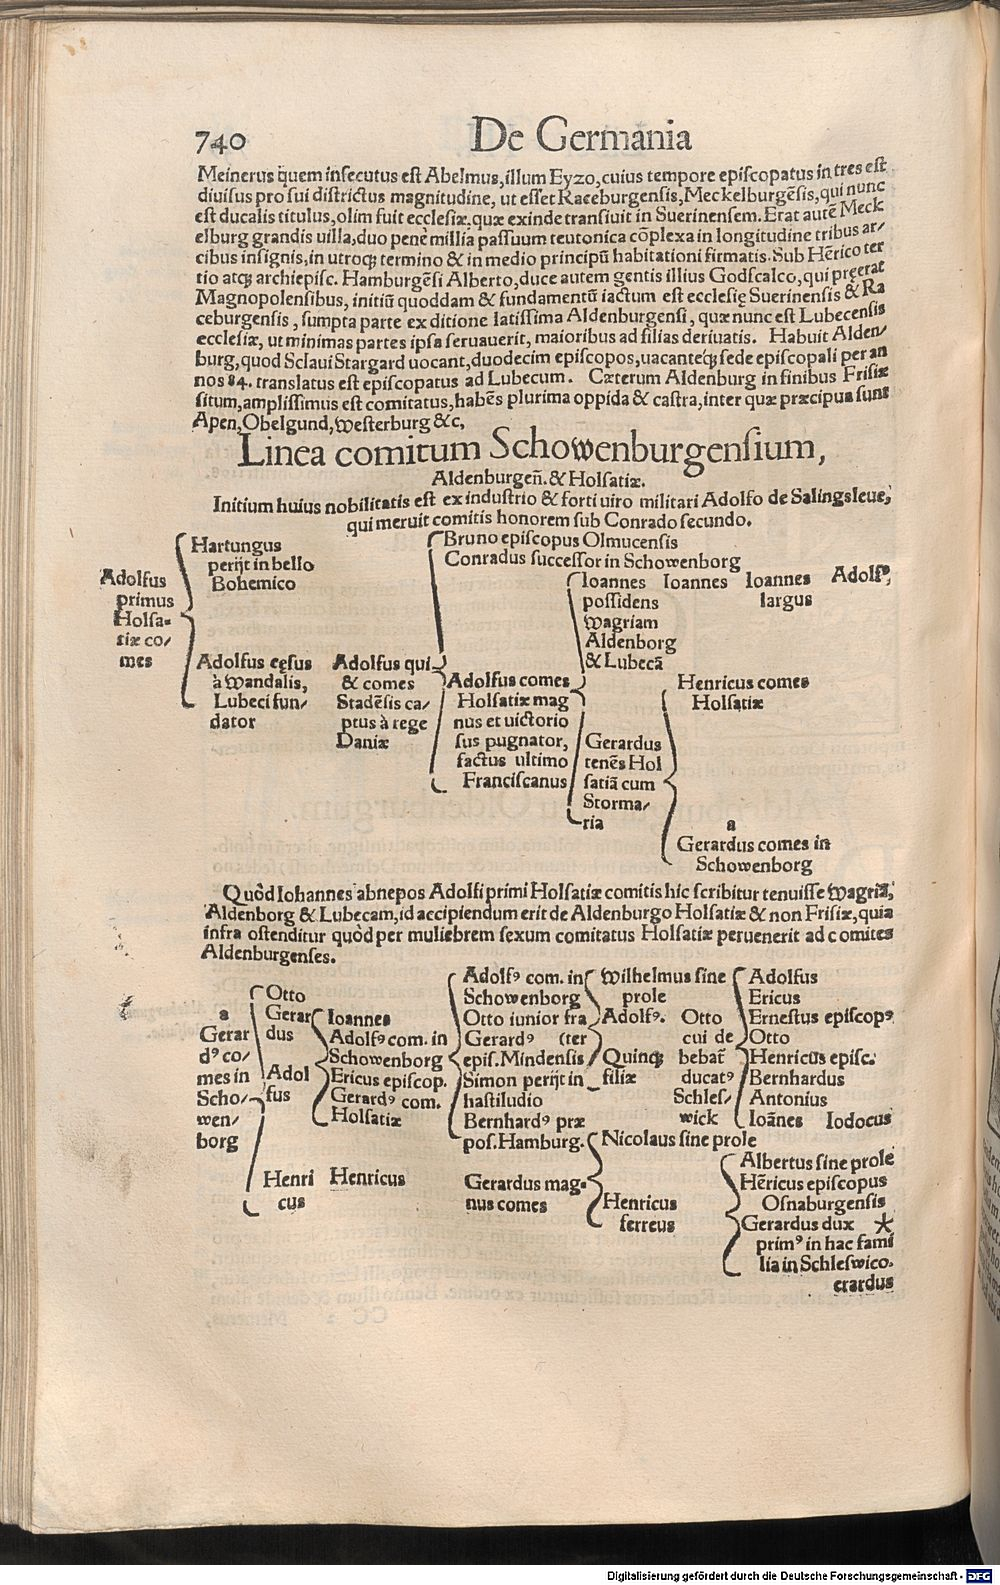 740 De Germania
Meinerus quem insecutus est Abelmus, illum Eyzo, cuius tempore episcopatus in tres est
diuisus pro sui districtus magnitudine, ut esset Raceburgensis, Meckelburgẽsis, qui nunc
est ducalis titulus, olim fuit ecclesiæ, quæ exinde transiuit in Suerinensem. Erat autẽ Meck
elburg grandis uilla, duo penè millia passuum teutonica cõplexa in longitudine tribus ar⸗
cibus insignis, in utroq; termino & in medio principũ habitationi firmatis. Sub Hẽrico ter
tio atq; archiepisc. Hamburgẽsi Alberto, duce autem gentis illius Godscalco, qui pręerat
Magnopolensibus, initiũ quoddam & fundamentũ iactum est ecclesię Suerinensis & Ra
ceburgensis, sumpta parte ex ditione latissima Aldenburgensi, quæ nunc est Lubecensis
ecclesiæ, ut minimas partes ipsa seruauerit, maioribus ad filias deriuatis. Habuit Alden⸗
burg, quod Sclaui Stargard uocant, duodecim episcopos, uacanteq; sede episcopali per an
nos 84. translatus est episcopatus ad Lubecum. Cæterum Aldenburg in finibus Frisiæ
situm, amplissimus est comitatus, habẽs plurima oppida & castra, inter quæ præcipua sunt
Apen, Obelgund, Westerburg &c.
Linea comitum Schowenburgensium,
Aldenburgeñ. & Holsatiæ.
Initium huius nobilitatis est ex industrio & forti uiro militari Adolfo de Salingsleue,
qui meruit comitis honorem sub Conrado secundo.
Adolfus
primus
Holsa⸗
tiæ co⸗
mes
Hartungus
perijt in bello
Bohemico
Adolfus cęsus
à Wandalis,
Lubeci fun⸗
dator
Adolfus qui
& comes
Stadẽsis ca⸗
ptus à rege
Daniæ
Bruno episcopus Olmucensis
Conradus successor in Schowenborg
Adolfus comes
Holsatiæ mag
nus et uictorio
sus pugnator,
factus ultimo
Franciscanus
Ioannes Ioannes Ioannes Adolfꝰ,
possidens largus
Wagriam
Aldenborg
& Lubecã
Gerardus
tenẽs Hol
satiã cum
Storma⸗
ria
Henricus comes
Holsatiæ
a
Gerardus comes in
Schowenborg
Quòd Iohannes abnepos Adolfi primi Holsatiæ comitis hic scribitur tenuisse Wagriã,
Aldenborg & Lubecam, id accipiendum erit de Aldenburgo Holsatiæ & non Frisiæ, quia
infra ostenditur quòd per muliebrem sexum comitatus Holsatiæ peruenerit ad comites
Aldenburgenses.
a
Gerar
dꝰ co⸗
mes in
Scho⸗
wen⸗
borg
Otto
Gerar
dus
Adol
fus
Henri
cus
Ioannes
Adolfꝰ com. in
Schowenborg
Ericus episcop.
Gerardꝰ com.
Holsatiæ
Henricus
Adolfꝰ com. in
Schowenborg
Otto iunior fra
Gerardꝰ (ter
epis. Mindensis
Simon perijt in
hastiludio
Bernhardꝰ præ
pos. Hamburg.
Gerardus mag⸗
nus comes
Wilhelmus sine
prole
Adolfꝰ.
Quinq;
filiæ
Otto
cui de
bebat̃
ducatꝰ
Schles⸗
wick
Adolfus
Ericus
Ernestus episcopꝰ
Otto
Henricus episc.
Bernhardus
Antonius
Ioãnes Iodocus
Nicolaus sine prole
Henricus
ferreus
Albertus sine prole
Hẽricus episcopus
Osnaburgensis
Gerardus dux *
primꝰ in hac fami
lia in Schleswico.
erardus
Digitalisierung gefördert durch die Deutsche Forschungsgemeinschaft - DFG